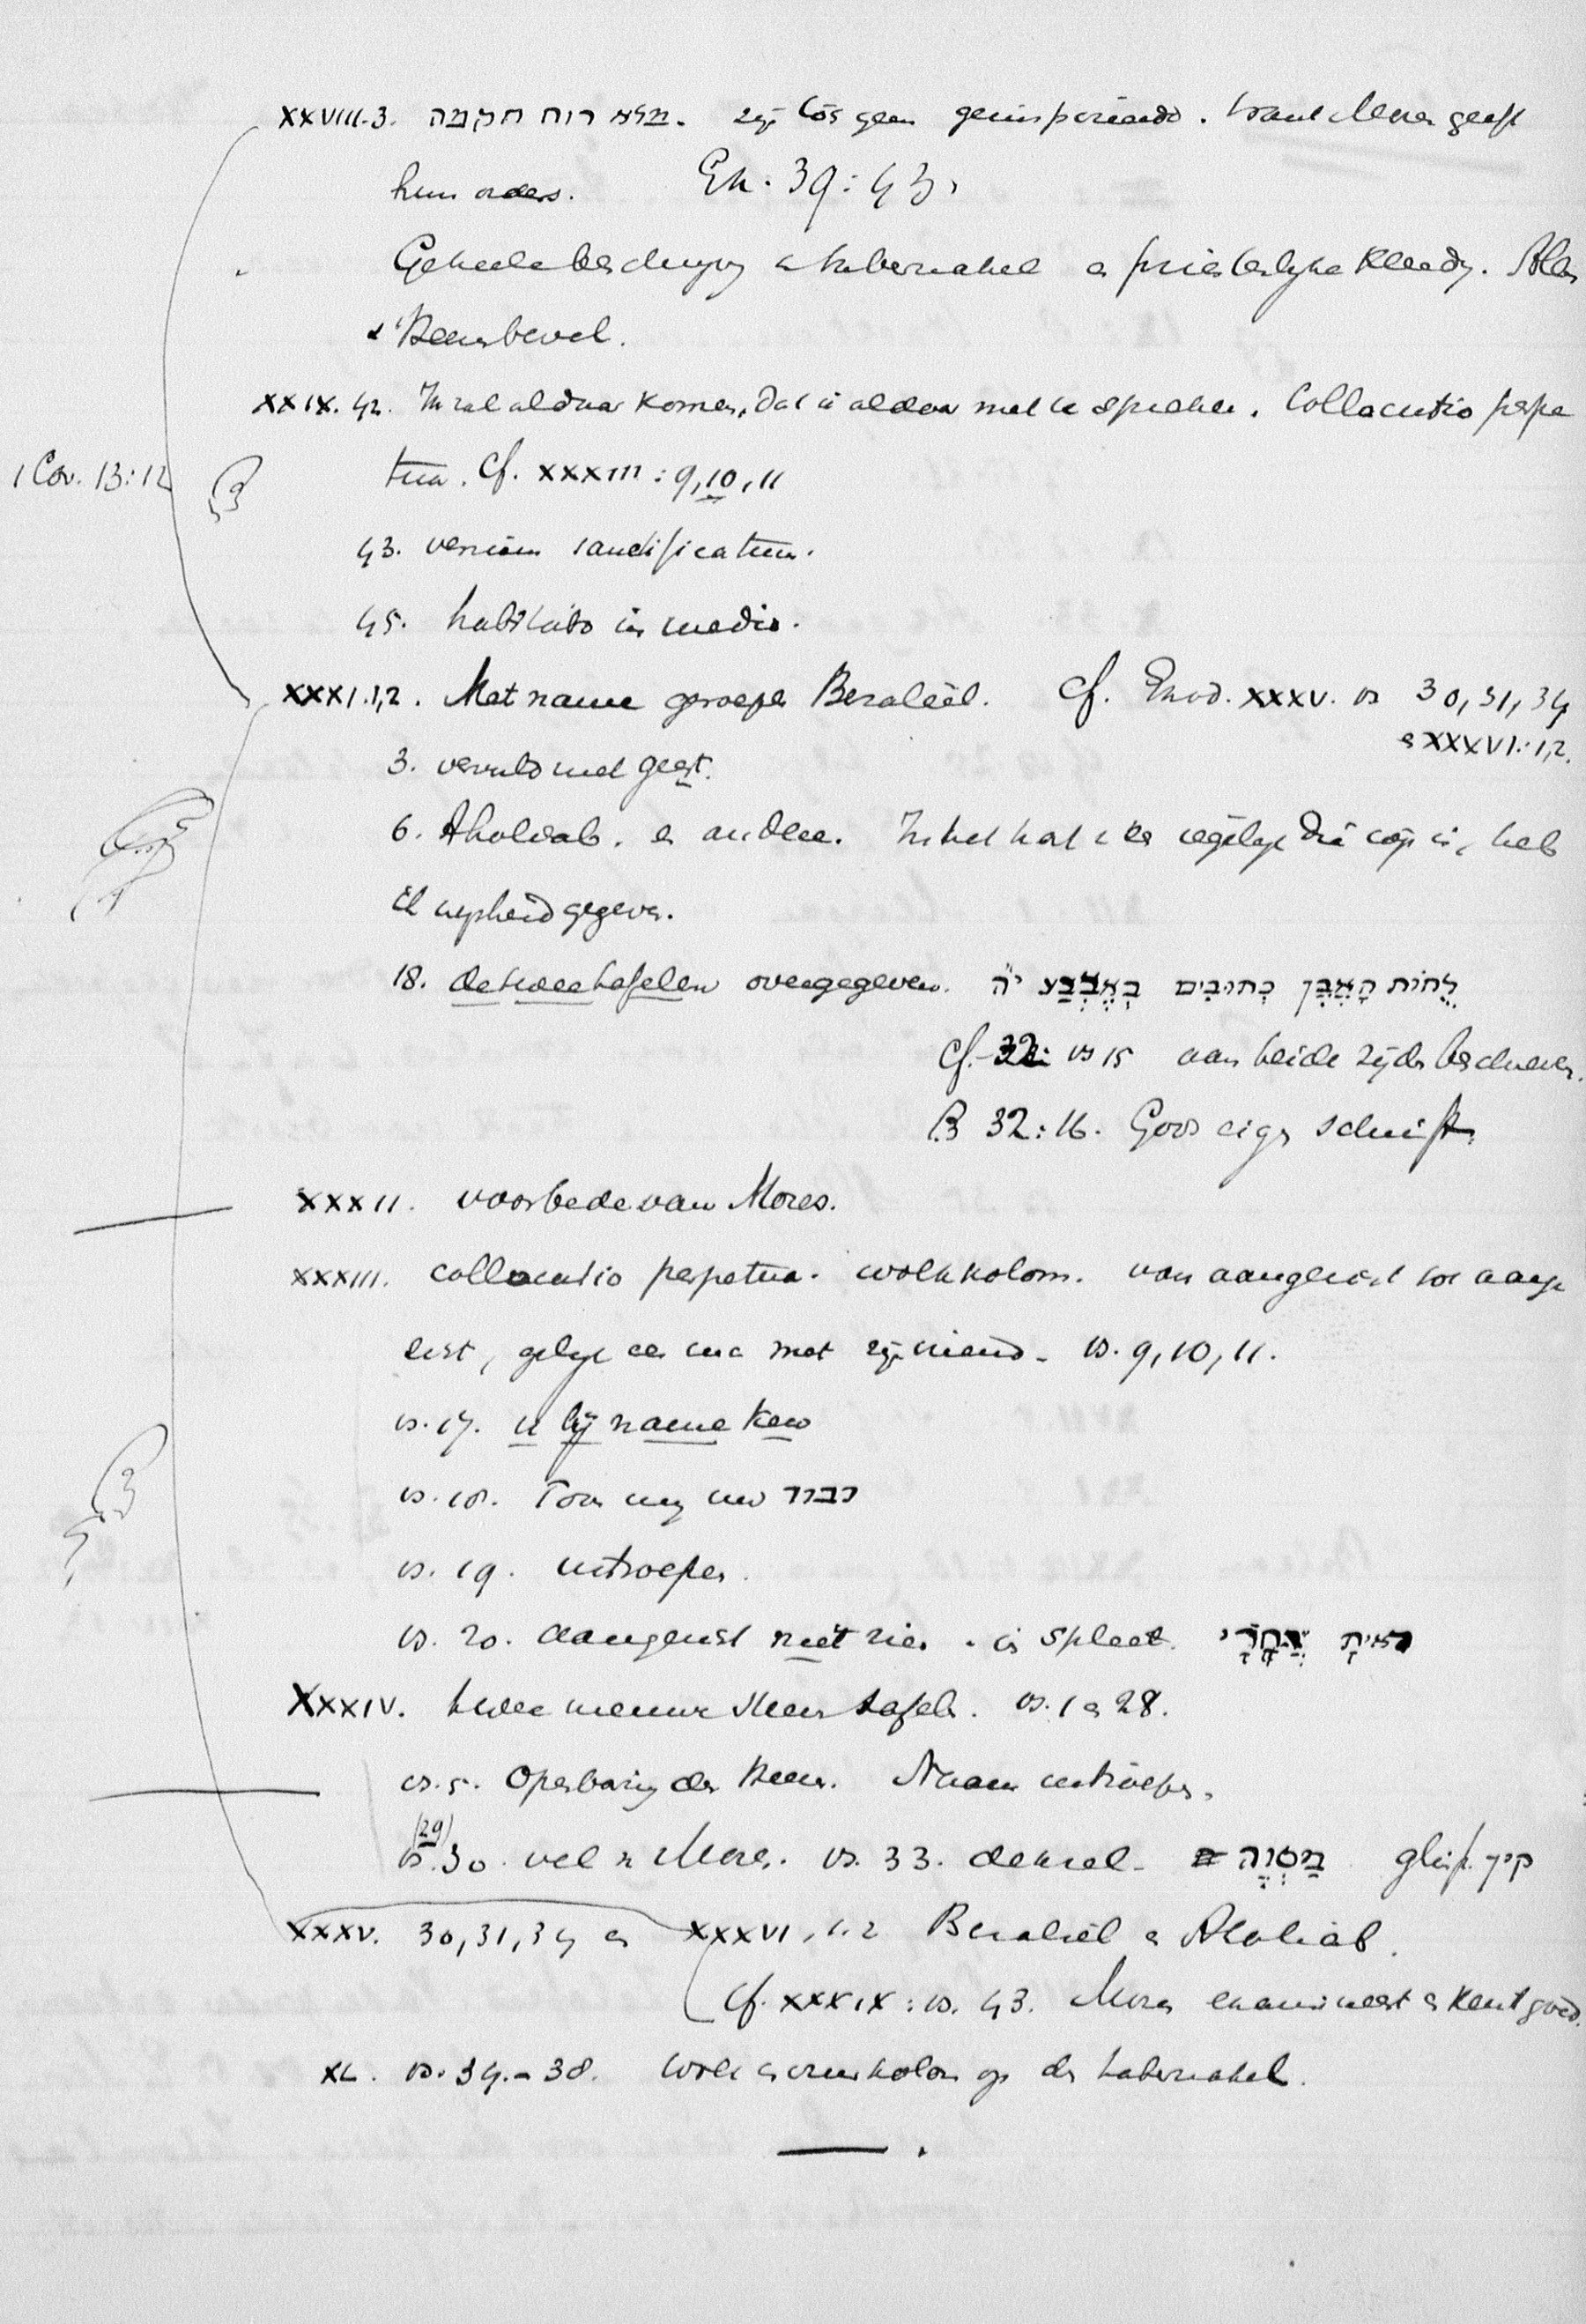 XXVIII.3. מלא רוח חכמה. zij toch geen geinspireerd. want Mozes geeft
hun orders. Ex. 39:43.
Geheele beschrijving v tabernakel en priesterlijke kleedij. Alles
's Heeren bevel.
XXIX. 42. Ik zal aldaar komen, dat ik aldaar met u spreke. Collocutio perpe
1 Cor. 13:12
tua. Cf. XXXIII: 9,10,11
43. veniam sanctificatum.
45. habitabo in medio.
XXXI.1,2. Met name geroepen Bezaleël. Cf. Exod. XXXV. vs 30,31,34
en XXXVI:1,2.
3. vervuld met geest.
6. Aholiab. en andere. In het hart van iegelijk die wijs is, heb
ik wijsheid gegeven.
18. de twee tafelen overgegeven. לֻחֹות הָאֶבֶן כְּתוּבִים בְּאֶצְבַּע י"ה
Cf. 32: vs 15 aan beide zijden beschreven.
B 32:16. Gods eigen schrift.
XXXII. voorbede van Mozes.
XXXIII. collocutio perpetua. wolkkolom. van aangezicht tot aange
zicht, gelijk een man met zijn vriend. vs. 9,10,11.
vs. 17. u bij name ken
vs. 18. Toon mij uw כבוד
vs. 19. uitroepen.
vs. 20. aangezicht niet zien. in spleet.
XXXIV. twee nieuwe steen tafels. vs. 1 en 28.
vs. 5. Openbaring des Heeren. Naam uitroepen.
(29)
vs. 30. vel v Mozes. vs. 33. deksel. מַסְוֶה קרן
XXXV. 30,31,34 en XXXVI, 1.2 Bezaleël en Aholiab.
Cf. XXXIX: vs. 43. Mozes examineert en keurt goed.
XL. vs. 34.-38. Wolk en vuurkolom op den tabernakel.